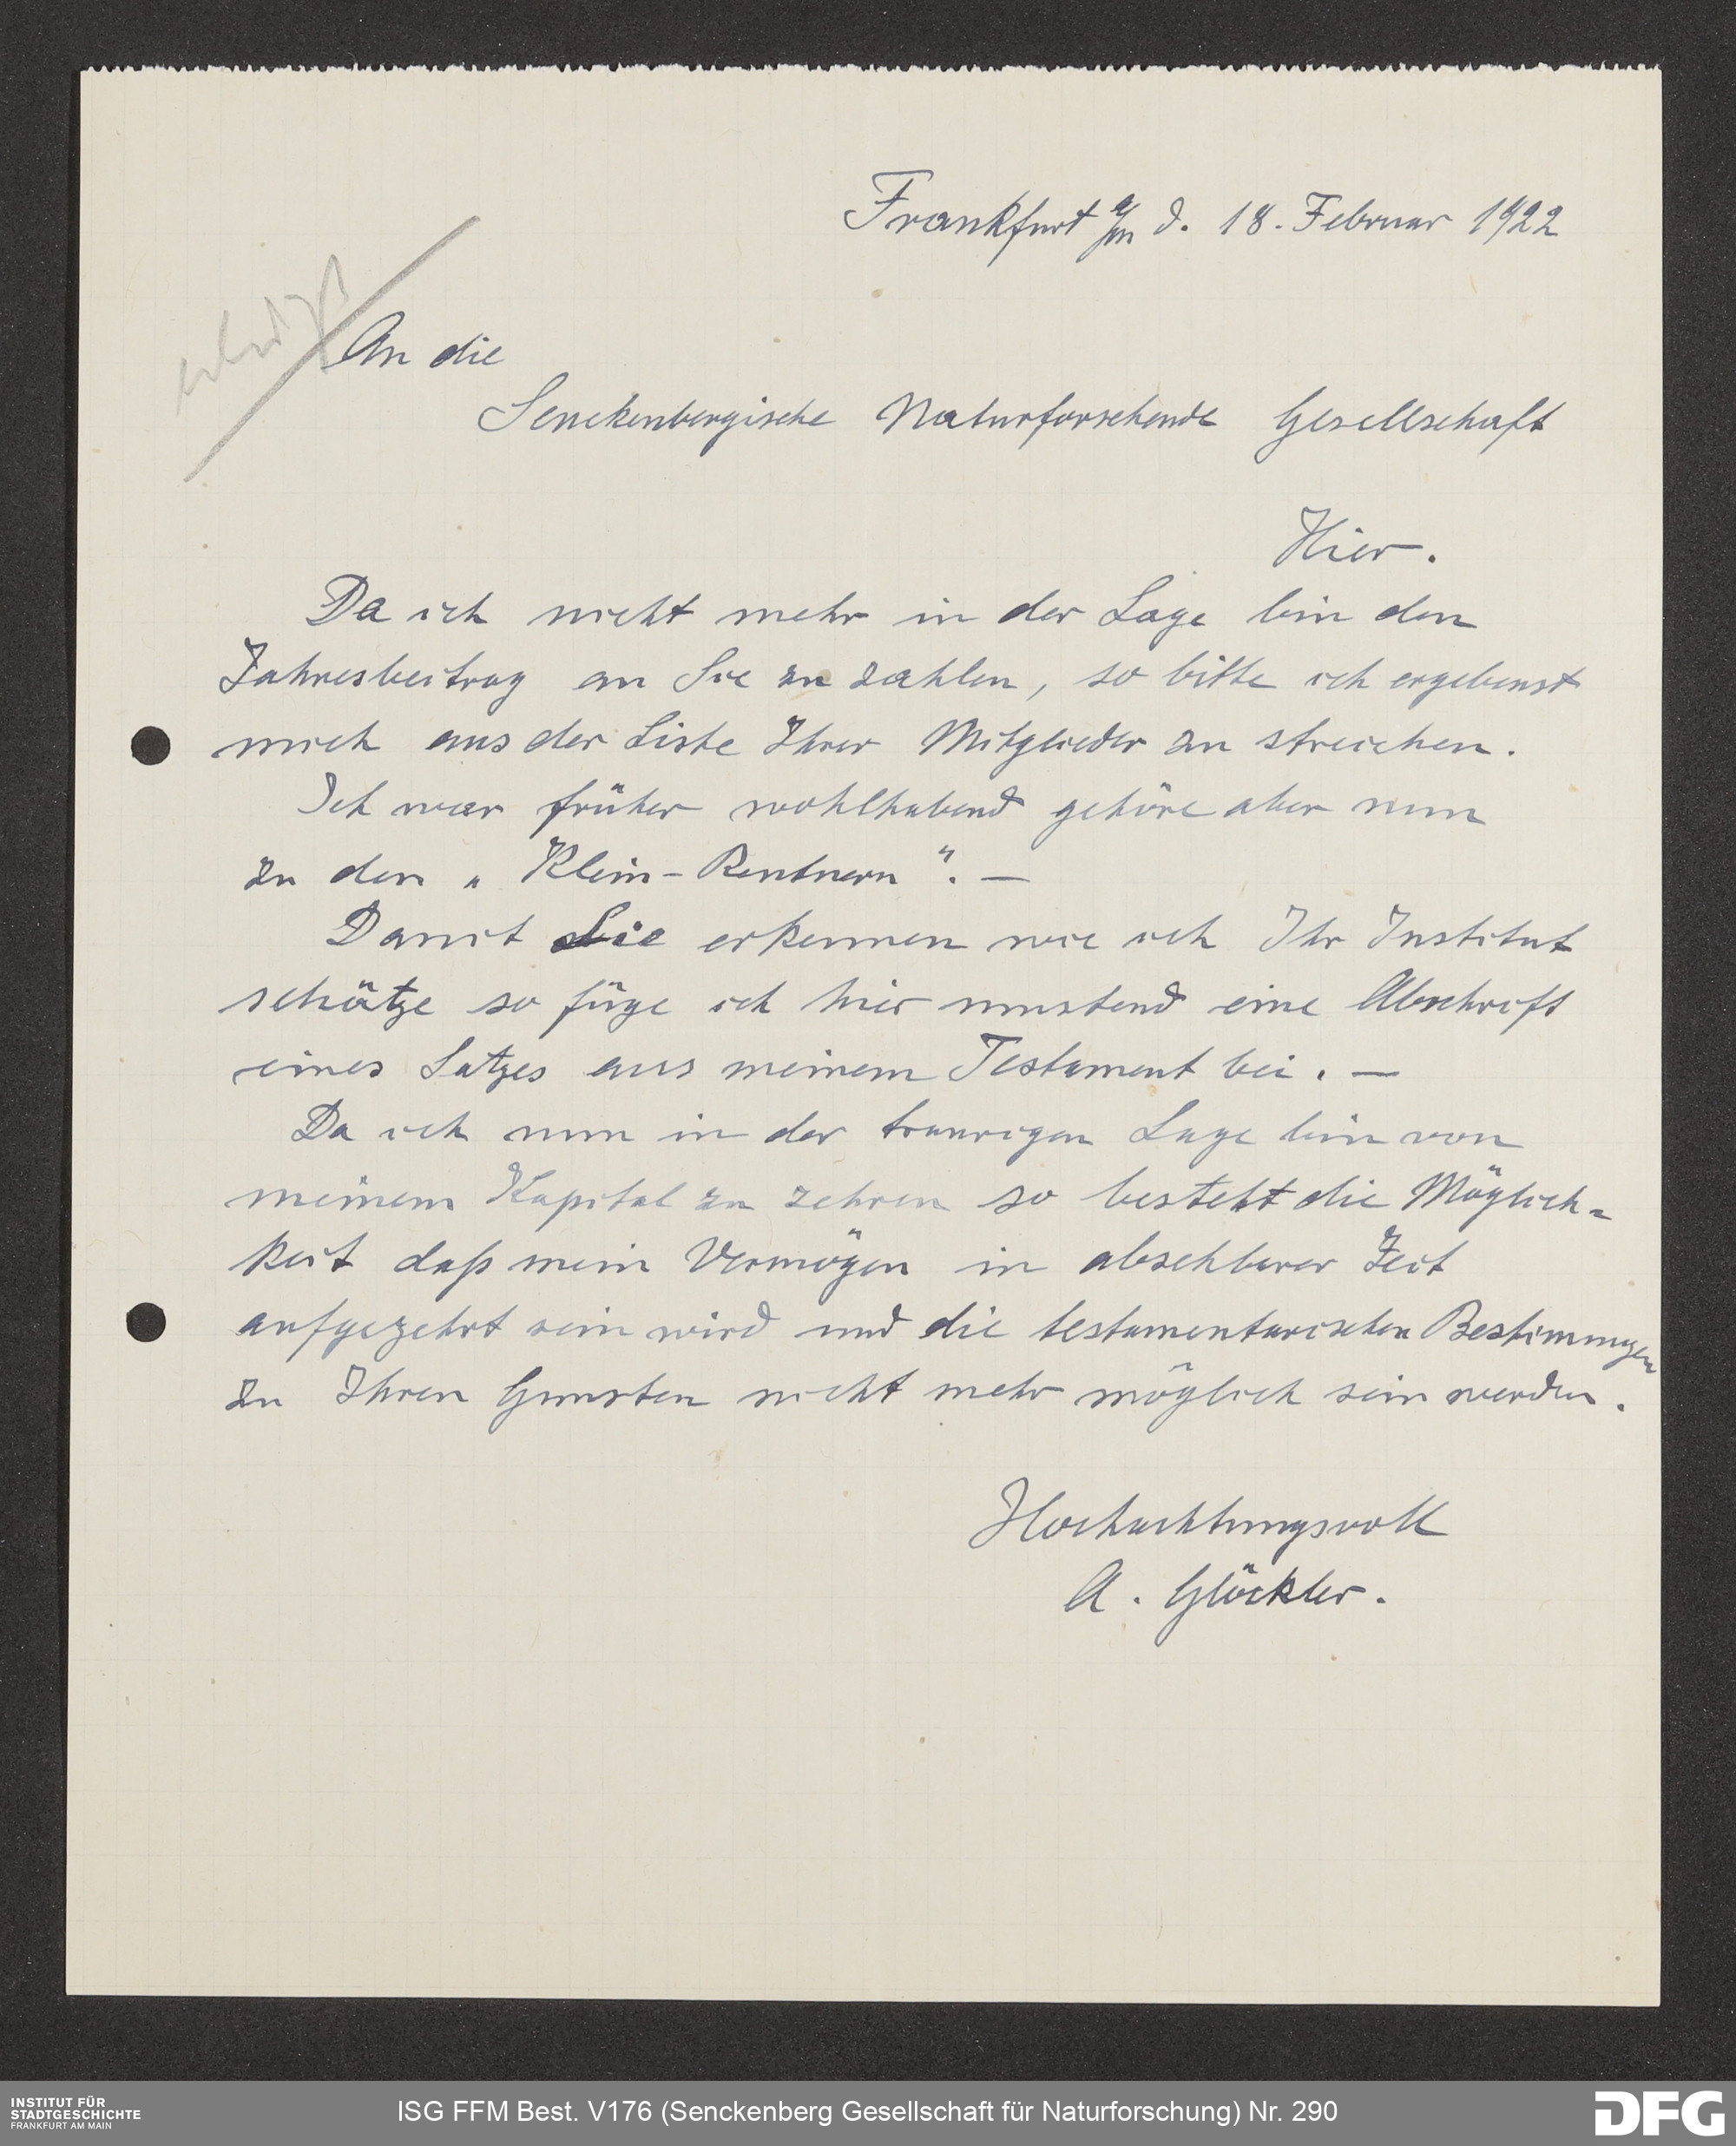 Frankfurt a/m d. 18. Februar 1922
erledigt
An die
Senckenbergische Naturforschende Gesellschaft
Hier.
Da ich nicht mehr in der Lage bin den
Jahresbeitrag an Sie zu zahlen, so bitte ich ergebenst
mich aus der Liste Ihrer Mitglieder zu streichen.
Ich war früher wohlhabend gehöre aber nun
zu den „Klein-Rentnern". —
Damit Sie erkennen wie ich Ihr Institut
schätze so füge ich hier unustend eine Abschrift
eines Satzes aus meinem Testament bei. —
Da ich nun in der traurigen Lage bin von
meinem Kapital zu zehren so besteht die Möglich=
keit daß mein Vermögen in absehbarer Zeit
aufgezehrt sein wird und die testamentarischen Bestimmungen
zu Ihren Gunsten nicht mehr möglich sein werden.
Hochachtungsvoll
A. Glöckler.
INSTITUT FÜR
STADTGESCHICHTE
FRANKFURT AM MAIN
ISG FFM Best. V176 (Senckenberg Gesellschaft für Naturforschung) Nr. 290
DFG